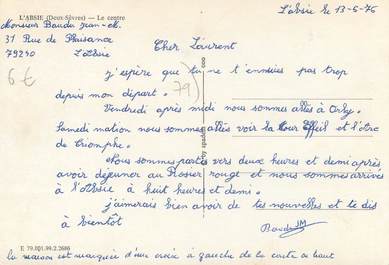 L'ABSIE (Deux-Sèvres) — Le centre
l'absie le 13-6-76
Monsieur Baudu Jean-M.
31 Rue de Plaisance
79240 L'Absie
6 €
79)
Cher Laurent
j'espère que tu ne t'ennuies pas trop
depuis mon départ.
Vendredi après midi nous sommes allés à Orly.
Samedi mation nous sommes allés voir la tour Effeil et l'Arc
de triomphe.
Nous sommes partis vers deux heures et demi après
avoir déjeuner au Rosier rouge et nous sommes arrivés
à l'Absie à huit heures et demi.
j'aimerais bien avoir de tes nouvelles et te dis
à bientôt
Baudu JM
E 79.001.99.2.2686
la maison est marquée d'une croix à gauche de la carte en haut